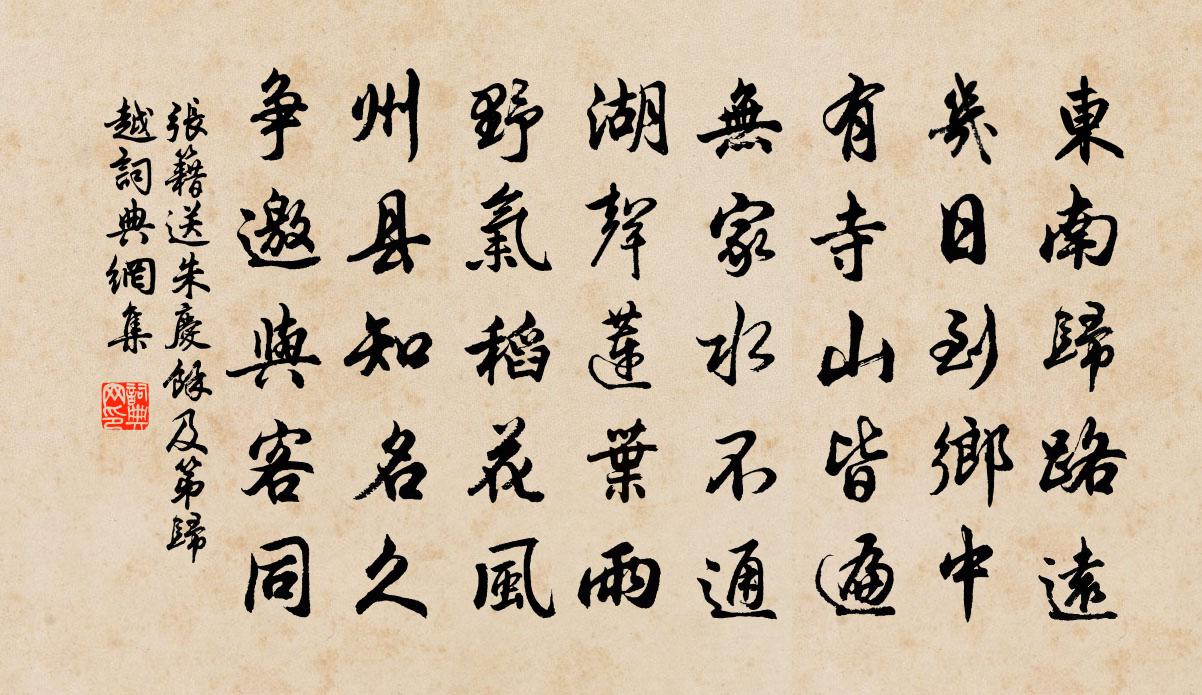 東南歸路遠
幾日到鄉中
有寺山皆遍
無家水不通
湖聲蓮葉雨
野氣稻花風
州县知名久
争邀與客同
張籍送朱慶餘及第歸
越詞典網集
詞典网印